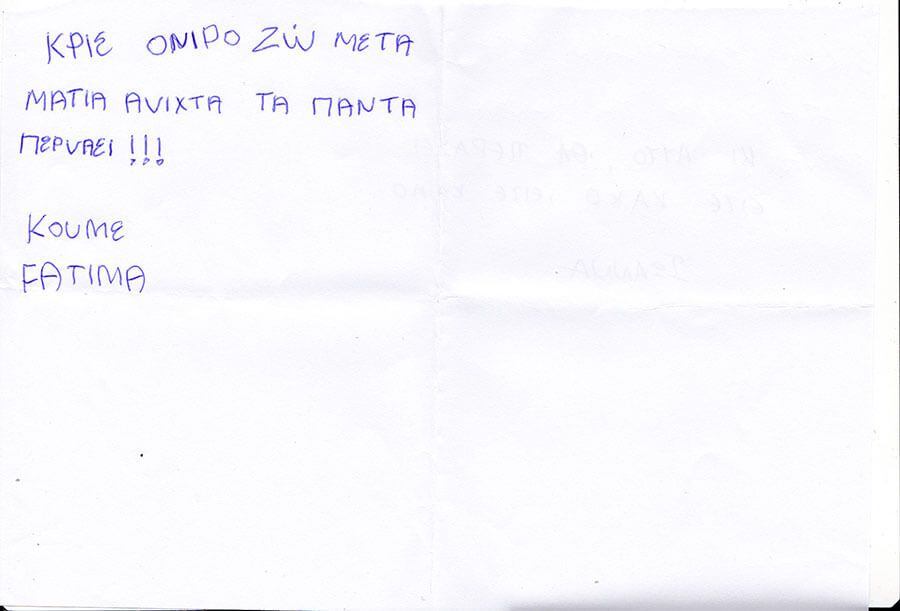 ΚΡΙΕ ΟΝΙΡΟ ΖΏ ΜΕΤΑ
ΜΑΤΙΑ ΑΝΙΧΤΑ ΤΑ ΠΑΝΤΑ
ΠΕΡΝΑΕΙ !!!
ΚΟΥΜΕ
FATIMA